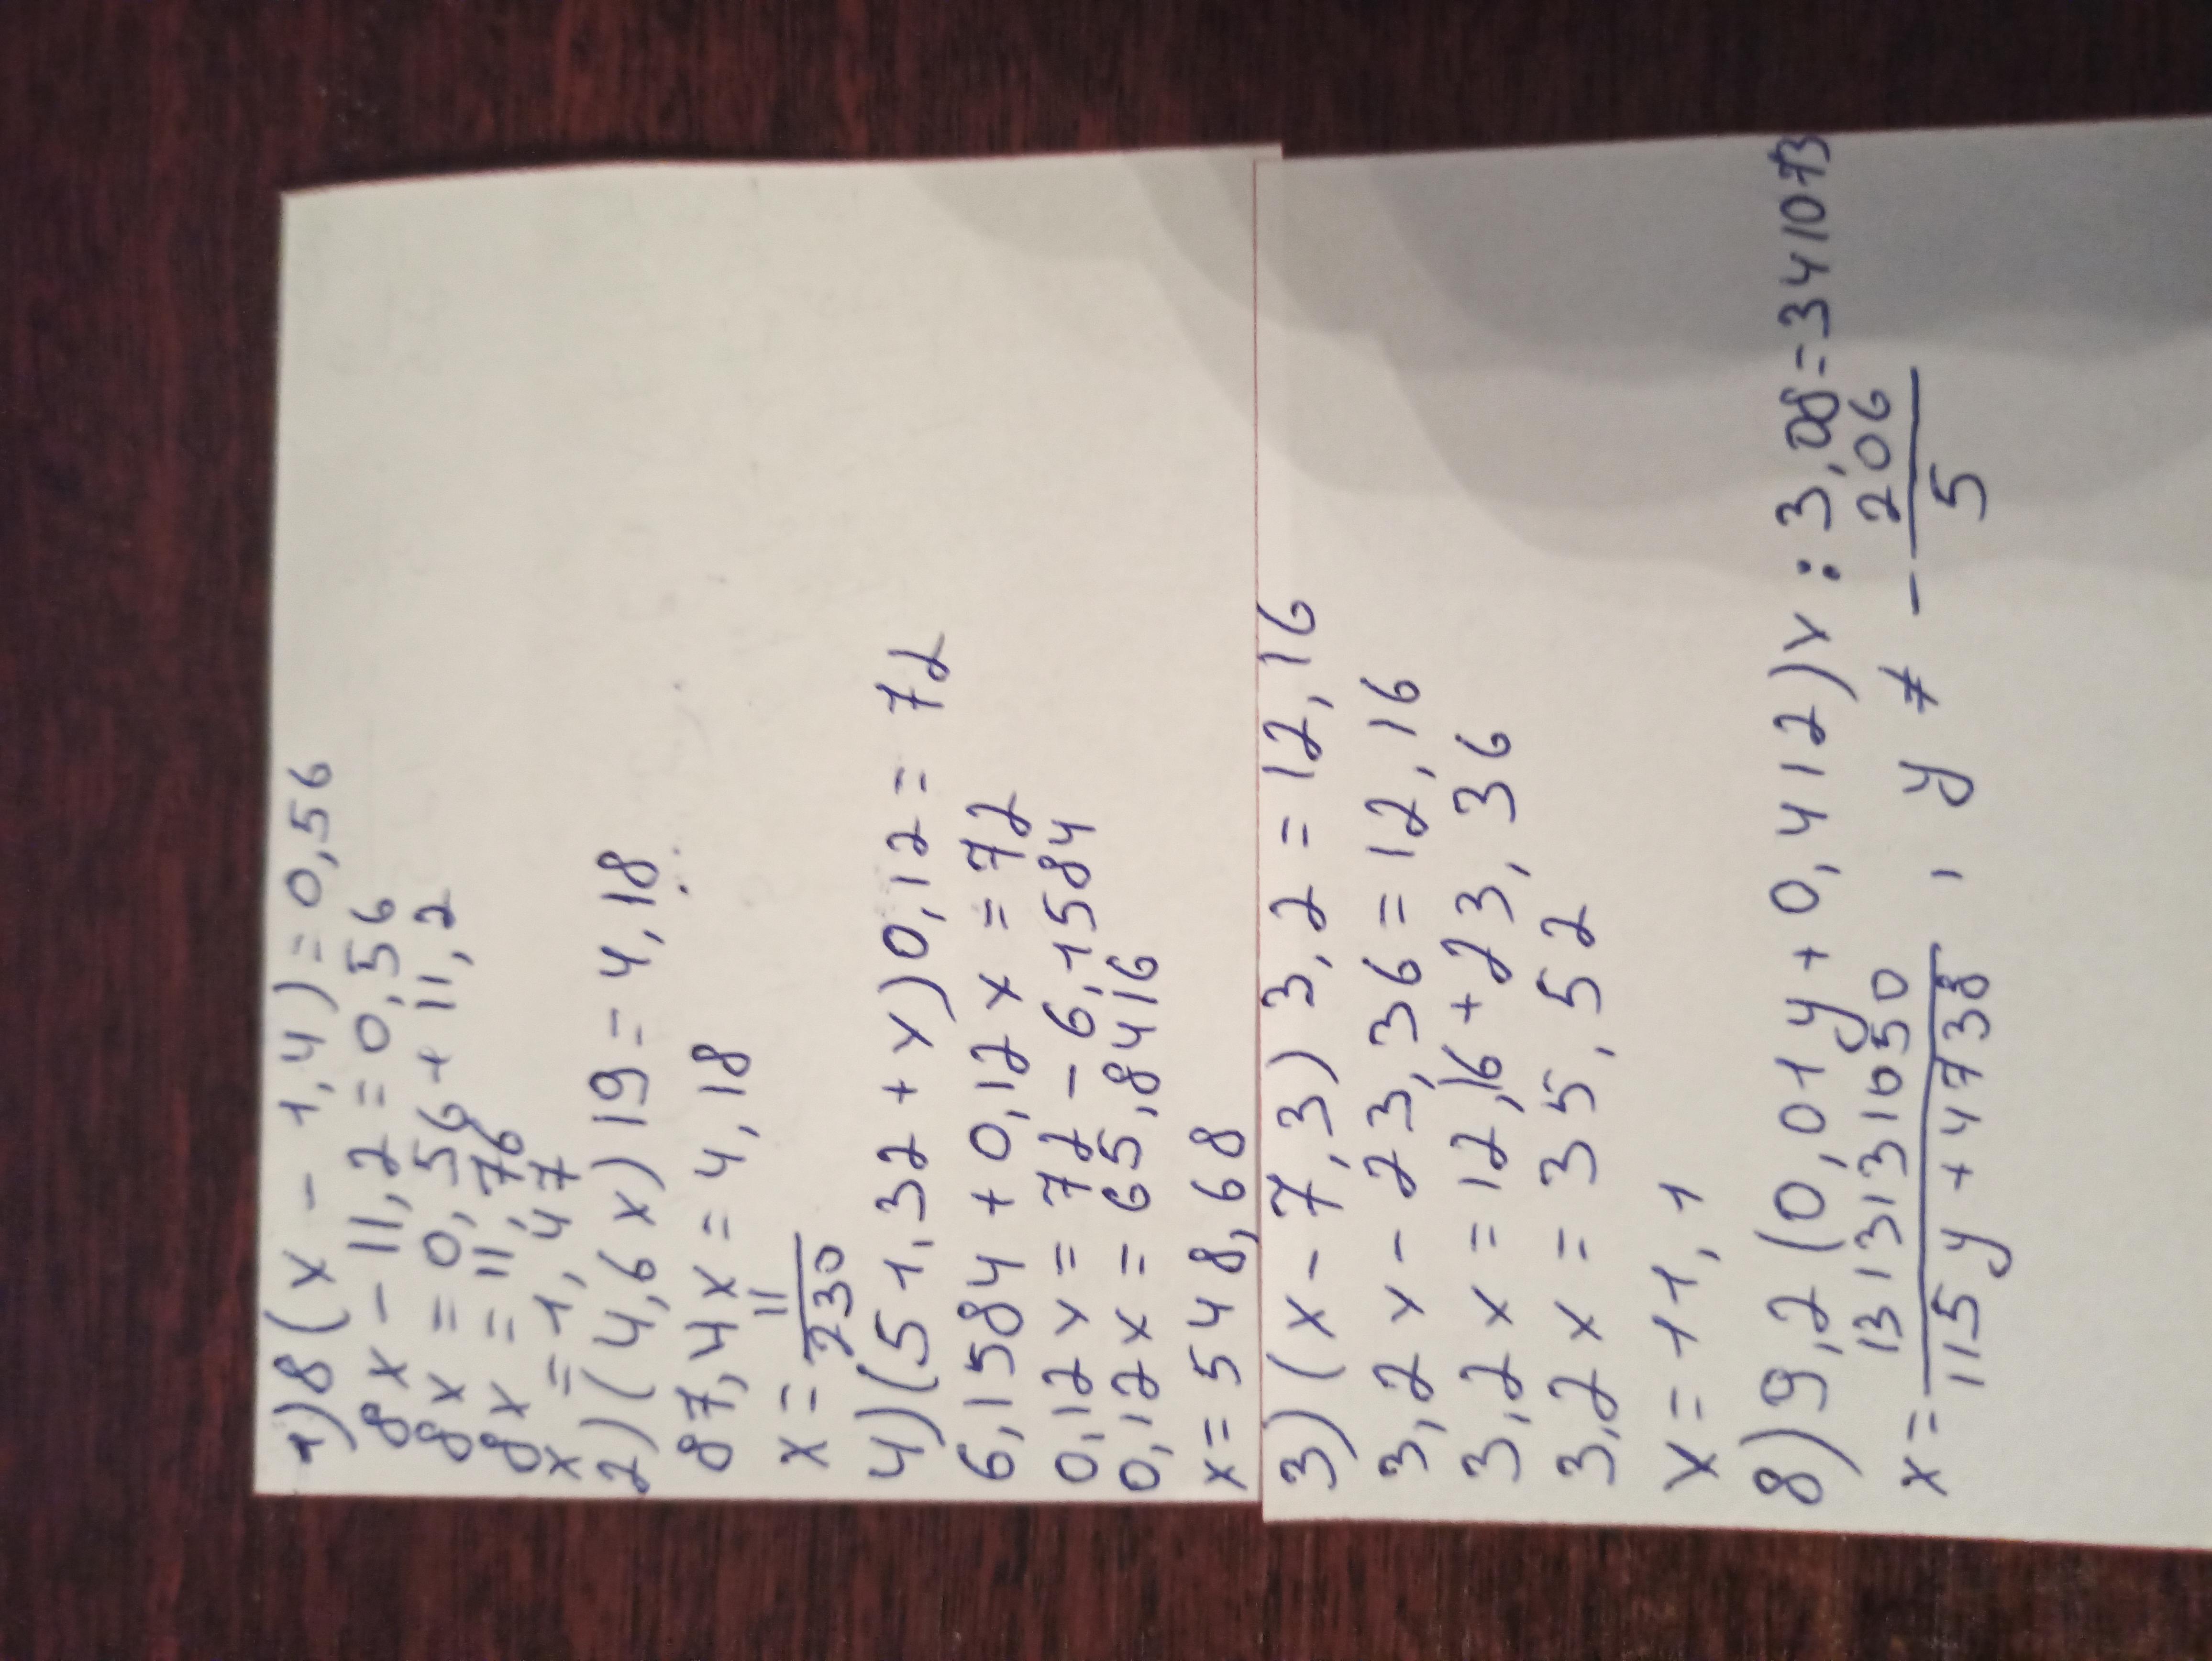 1) 8(x - 1,4) = 0,56
8x - 11,2 = 0,56
8x = 0,56 + 11,2
8x = 11,76
x = 1,47
2) (4,6x) 19 = 4,18
87,4x = 4,18
x = 11/230
4) (51,32 + x) 0,12 = 72
6,1584 + 0,12x = 72
0,12x = 72 - 6,1584
0,12x = 65,8416
x = 548,68
3) (x - 7,3) 3,2 = 12,16
3,2x - 23,36 = 12,16
3,2x = 12,16 + 23,36
3,2x = 35,52
x = 11,1
8) 9,2 (0,01y + 0,412)x : 3,08 = 341073
x = 1313131050/115y + 4738, y ≠ - 206/5